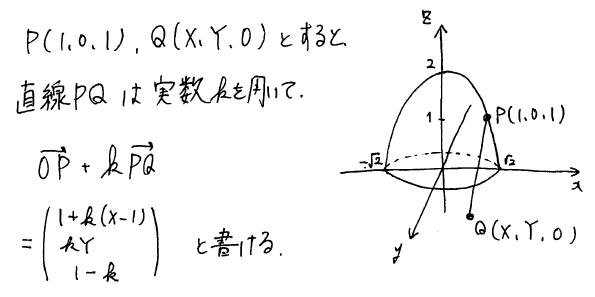 P(1,0,1), Q(X,Y,0)とすると
直線PQは実数kを用いて.
→OP + k→PQ
= (1+k(X-1)
kY
1-k) と書ける.
z
2
1
P(1,0,1)
-√2
√2
x
Q(X,Y,0)
y